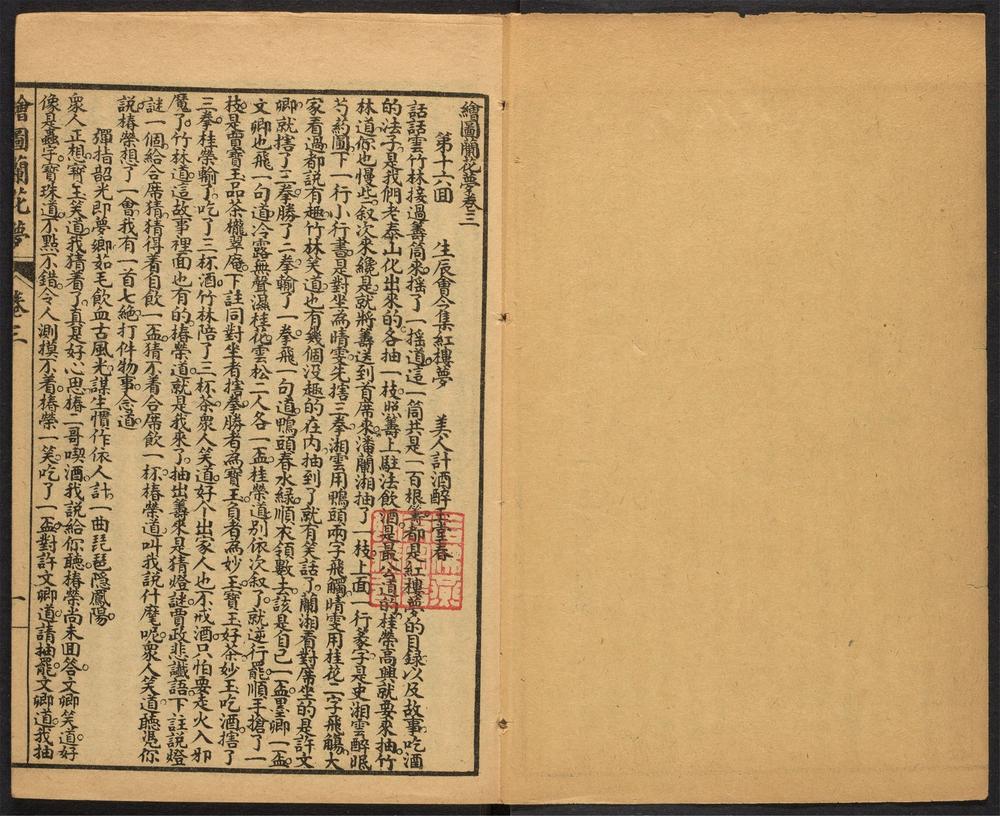 繪圖蘭花夢卷三
第十六回　生辰會令集紅樓夢　美人計酒醉玉堂春
話話雲竹林接過籌筒來搖了一搖道這一筒共是一百根籌都是紅樓夢的目錄以及故事吃酒
的法子是我們老泰山化出來的各抽一枝照籌上駐法飲酒是最公道的桂榮高興就要來抽竹
林道你也慢些叙次來纔是就將籌送到首席來潘蘭湘抽了一枝上面一行篆字是史湘雲醉眠
芍葯圃下一行小行書是對坐為晴雯先搳三拳湘雲用鴨頭兩字飛觴晴雯用桂花二字飛觴大
家看過都說有趣竹林笑道也有幾個没趣的在内抽到了就有笑話了蘭湘看對席坐的是許文
卿就搳了三拳勝了二拳輸了一拳飛一句道鴨頭春水綠順衣領數去該是自己一盃墨卿一盃
文卿也飛一句道冷露無聲濕桂花雲松二人各一盃桂榮道别依次叙了就逆行罷順手搶了一
枝是賈寶玉品茶櫳翠庵下註同對坐者搳拳勝者為寶玉負者為妙玉寶玉好茶妙玉吃酒搳了
三拳桂榮輸了吃了三杯酒竹林陪了三杯茶衆人笑道好个出家人也不戒酒只怕要走火入邪
魔了竹林道這故事裡面也有的椿榮道就是我來了抽出籌來是猜燈謎賈政悲讖語下註說燈
謎一個給合席猜猜得着自飲一盃猜不着合席飲一杯椿榮道叫我説什麽呢衆人笑道聽憑你
説椿榮想了一會我有一首七絶打件物事念道
彈指韶光即夢卿茹毛飲血古風光謀生慣作依人計一曲琵琶隱鳳陽
衆人正想寶玉笑道我猜着了真是好心思椿二哥喫酒我説給你聽椿榮尚未回答文卿笑道好
像是蟲字寶珠道不點不錯令人測摸不着椿榮一笑吃了一盃對許文卿道請抽罷文卿道我抽
繪圖蘭花夢　卷三　一